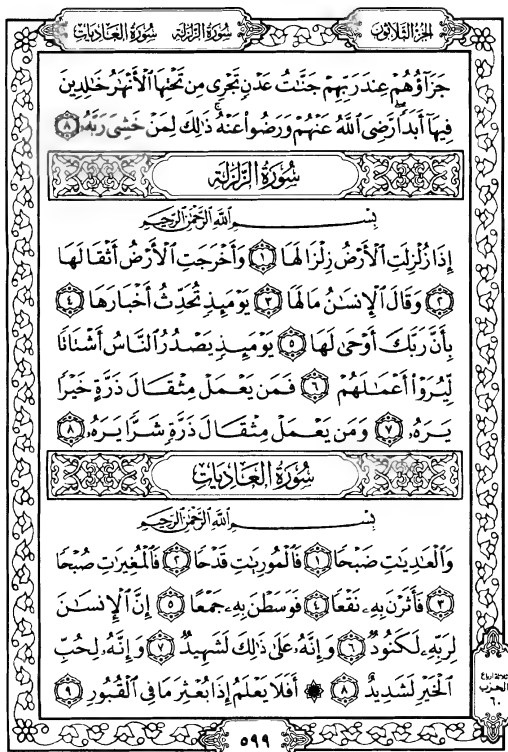 سُورَةُ الزَّلْزَلَةِ سُورَةُ الْعَادِيَاتِ
الجُزْءُ الثَّلَاثُونَ
جَزَآؤُهُمْ عِندَ رَبِّهِمْ جَنَّٰتُ عَدْنٍ تَجْرِى مِن تَحْتِهَا ٱلْأَنْهَٰرُ خَٰلِدِينَ
فِيهَآ أَبَدًا ۖ رَّضِىَ ٱللَّهُ عَنْهُمْ وَرَضُوا۟ عَنْهُ ۚ ذَٰلِكَ لِمَنْ خَشِىَ رَبَّهُۥ ٨
سُورَةُ الزَّلْزَلَةِ
بِسْمِ ٱللَّهِ ٱلرَّحْمَٰنِ ٱلرَّحِيمِ
إِذَا زُلْزِلَتِ ٱلْأَرْضُ زِلْزَالَهَا ١ وَأَخْرَجَتِ ٱلْأَرْضُ أَثْقَالَهَا
٢ وَقَالَ ٱلْإِنسَٰنُ مَا لَهَا ٣ يَوْمَئِذٍ تُحَدِّثُ أَخْبَارَهَا ٤
بِأَنَّ رَبَّكَ أَوْحَىٰ لَهَا ٥ يَوْمَئِذٍ يَصْدُرُ ٱلنَّاسُ أَشْتَاتًا
لِّيُرَوْا۟ أَعْمَٰلَهُمْ ٦ فَمَن يَعْمَلْ مِثْقَالَ ذَرَّةٍ خَيْرًا
يَرَهُۥ ٧ وَمَن يَعْمَلْ مِثْقَالَ ذَرَّةٍ شَرًّا يَرَهُۥ ٨
سُورَةُ الْعَادِيَاتِ
بِسْمِ ٱللَّهِ ٱلرَّحْمَٰنِ ٱلرَّحِيمِ
وَٱلْعَٰدِيَٰتِ ضَبْحًا ١ فَٱلْمُورِيَٰتِ قَدْحًا ٢ فَٱلْمُغِيرَٰتِ صُبْحًا
٣ فَأَثَرْنَ بِهِۦ نَقْعًا ٤ فَوَسَطْنَ بِهِۦ جَمْعًا ٥ إِنَّ ٱلْإِنسَٰنَ
لِرَبِّهِۦ لَكَنُودٌ ٦ وَإِنَّهُۥ عَلَىٰ ذَٰلِكَ لَشَهِيدٌ ٧ وَإِنَّهُۥ لِحُبِّ
ٱلْخَيْرِ لَشَدِيدٌ ٨ ۞ أَفَلَا يَعْلَمُ إِذَا بُعْثِرَ مَا فِى ٱلْقُبُورِ ٩
ثلاثة أرباع
الحزب
٦٠
٥٩٩